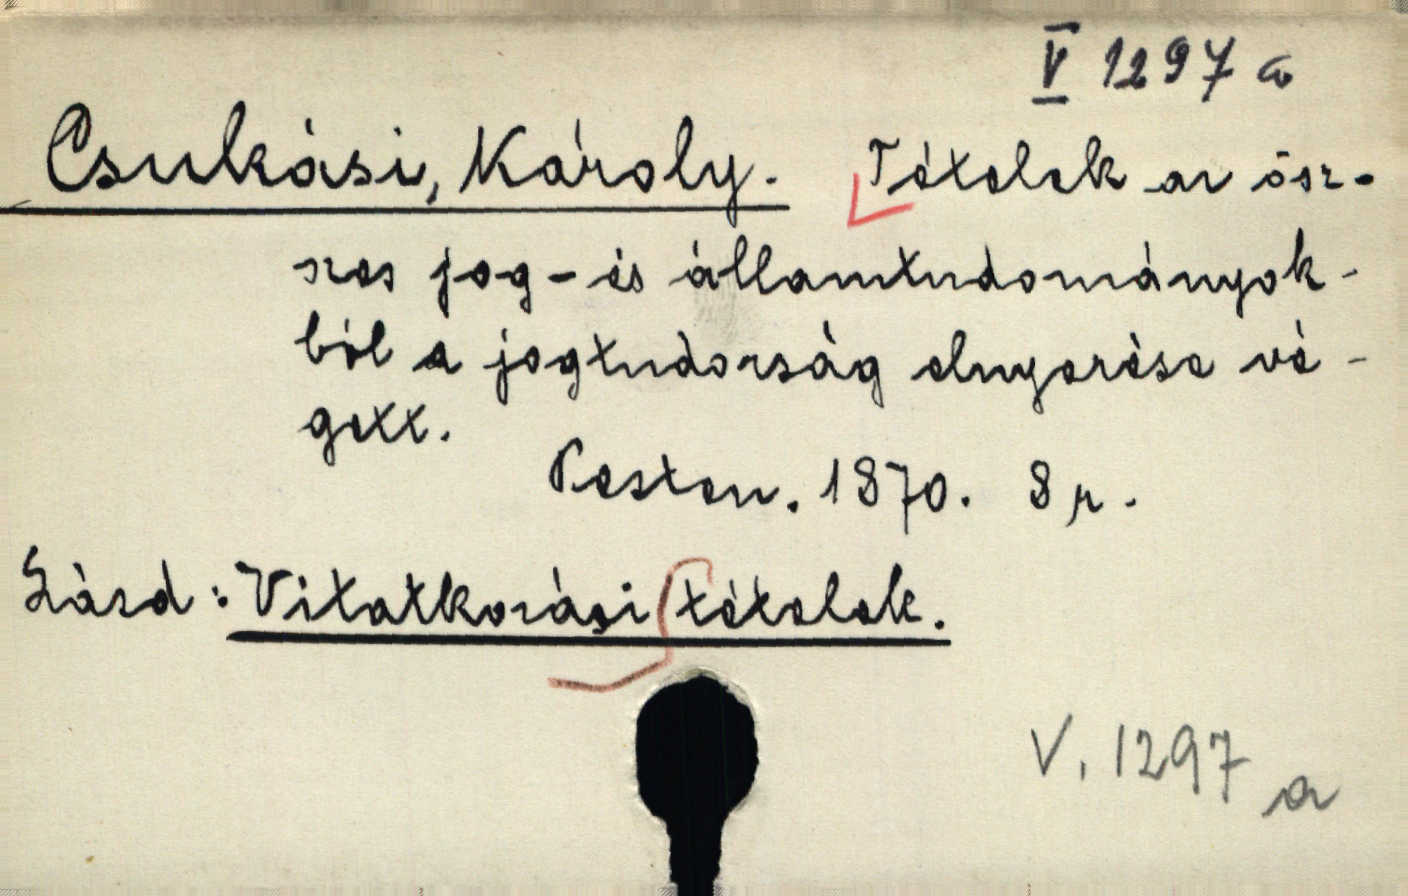 V 1297 a
Csukási, Károly. Tételek az ösz-
szes jog- és államtudományok-
ból a jogtudorság elnyerése vé-
gett.
Pesten. 1870. 8 r.
Lásd: Vitatkozási tételek.
V. 1297 a